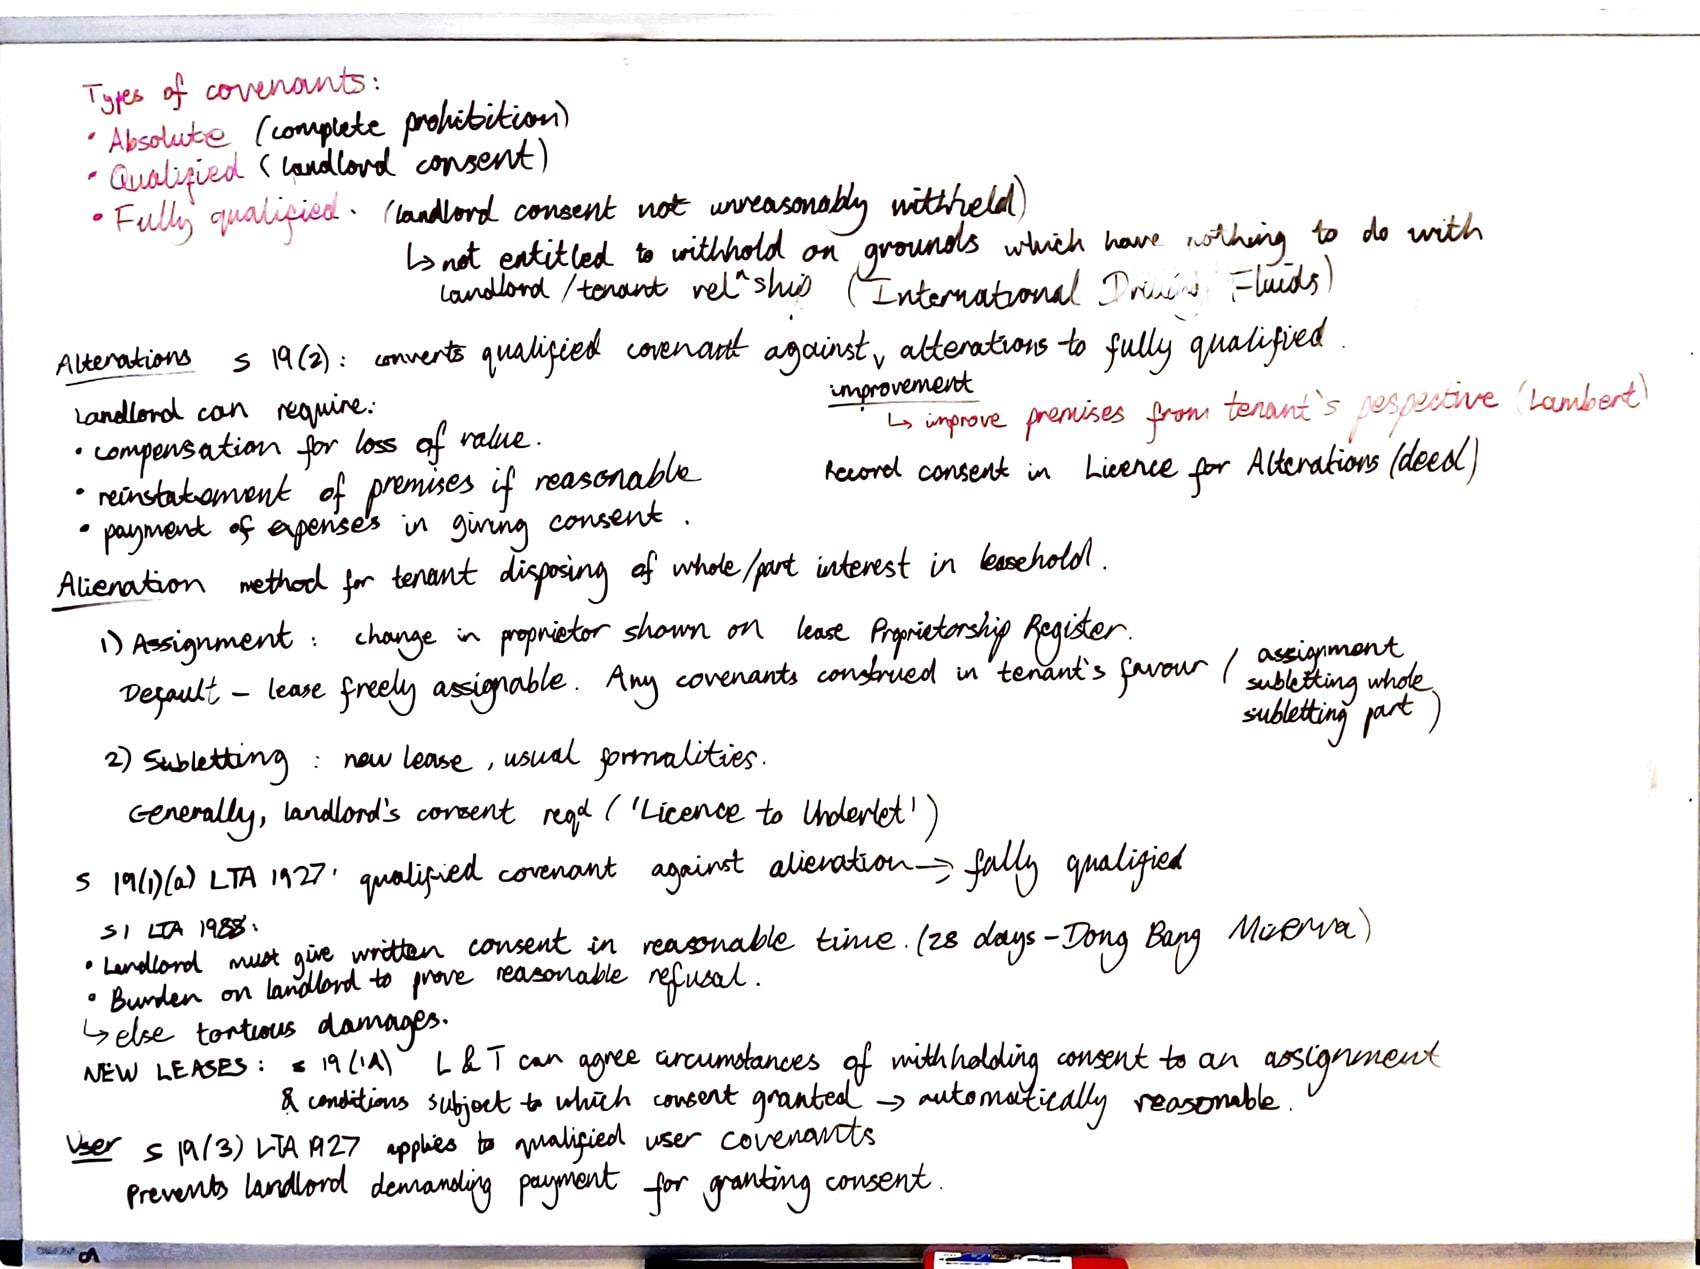 Types of covenants:
• Absolute (complete prohibition)
• Qualified (landlord consent)
• Fully qualified. (landlord consent not unreasonably withheld)
↳ not entitled to withhold on grounds which have nothing to do with
landlord/tenant relⁿship (International Drilling Fluids)
Alterations s 19(2): converts qualified covenant against v alterations to fully qualified.
improvement
↳ improve premises from tenant's pespective (Lambert)
Landlord can require:
• compensation for loss of value.
• reinstatement of premises if reasonable
• payment of expenses in giving consent.
Record consent in Licence for Alterations (deed)
Alienation method for tenant disposing of whole/part interest in leasehold.
1) Assignment: change in proprietor shown on lease Proprietorship Register.
Default – lease freely assignable. Any covenants construed in tenant's favour (assignment
subletting whole
subletting part)
2) Subletting: new lease, usual formalities.
Generally, landlord's consent reqd ('Licence to Underlet')
s 19(1)(a) LTA 1927: qualified covenant against alienation → fully qualified
S1 LTA 1988:
• Landlord must give written consent in reasonable time. (28 days – Dong Bang Minerva)
• Burden on landlord to prove reasonable refusal.
↳ else tortious damages.
NEW LEASES: s 19(1A) L & T can agree circumstances of withholding consent to an assignment
& conditions subject to which consent granted → automatically reasonable.
User s 19(3) LTA 1927 applies to qualified user covenants
Prevents landlord demanding payment for granting consent.